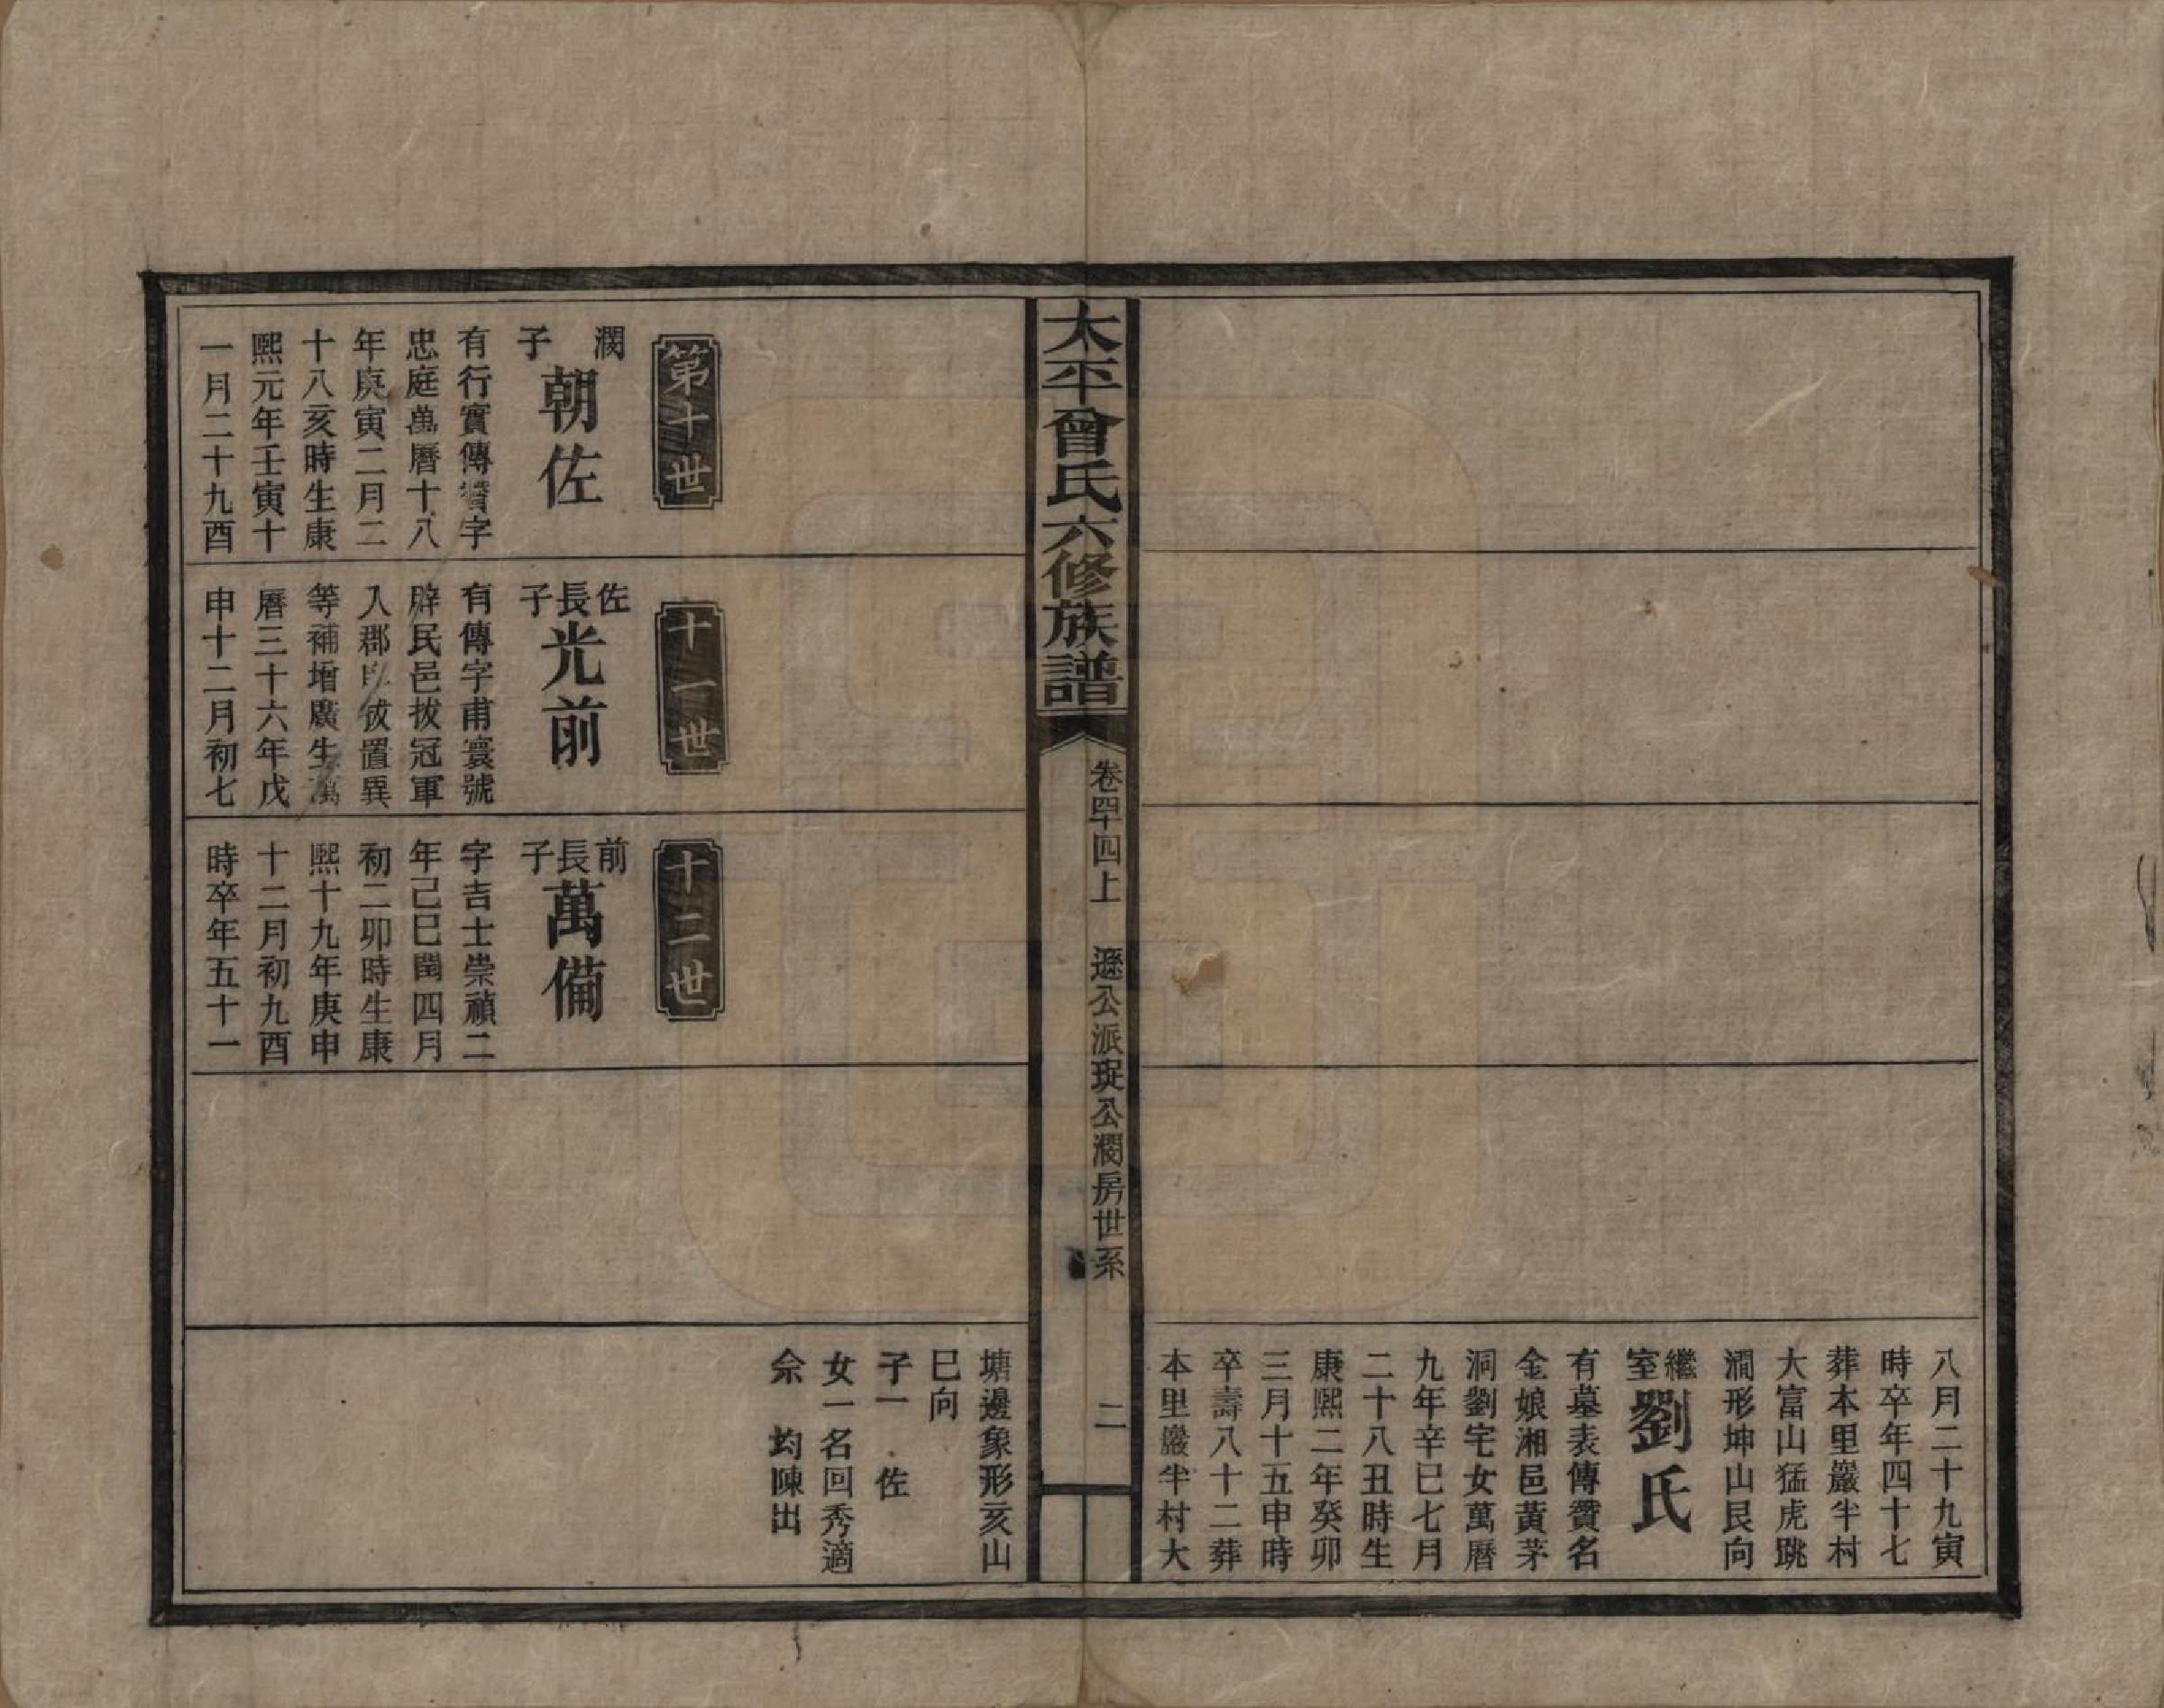 八月二十九寅
時卒年四十七
葬本里巖半村
大富山猛虎跳
澗形坤山艮向
繼室劉氏
有墓表傳贊名
金娘湘邑黃茅
洞劉宅女萬曆
九年辛巳七月
二十八丑時生
康熙二年癸卯
三月十五申時
卒壽八十二葬
本里巖半村大
太平曾氏六修族譜
卷四十四上 遜公派珽公潤房世系
二
塘邊象形亥山
巳向
子一 佐
女一名回秀適
余 均陳出
第十世
潤子朝佐
有行實傳贊字
忠庭萬曆十八
年庚寅二月二
十八亥時生康
熙元年壬寅十
一月二十九酉
十一世
佐長子光前
有傳字甫寰號
辟民邑拔冠軍
入郡 拔置異
等補增廣生萬
曆三十六年戊
申十二月初七
十二世
前長子萬備
字吉士崇禎二
年己巳閏四月
初二卯時生康
熙十九年庚申
十二月初九酉
時卒年五十一